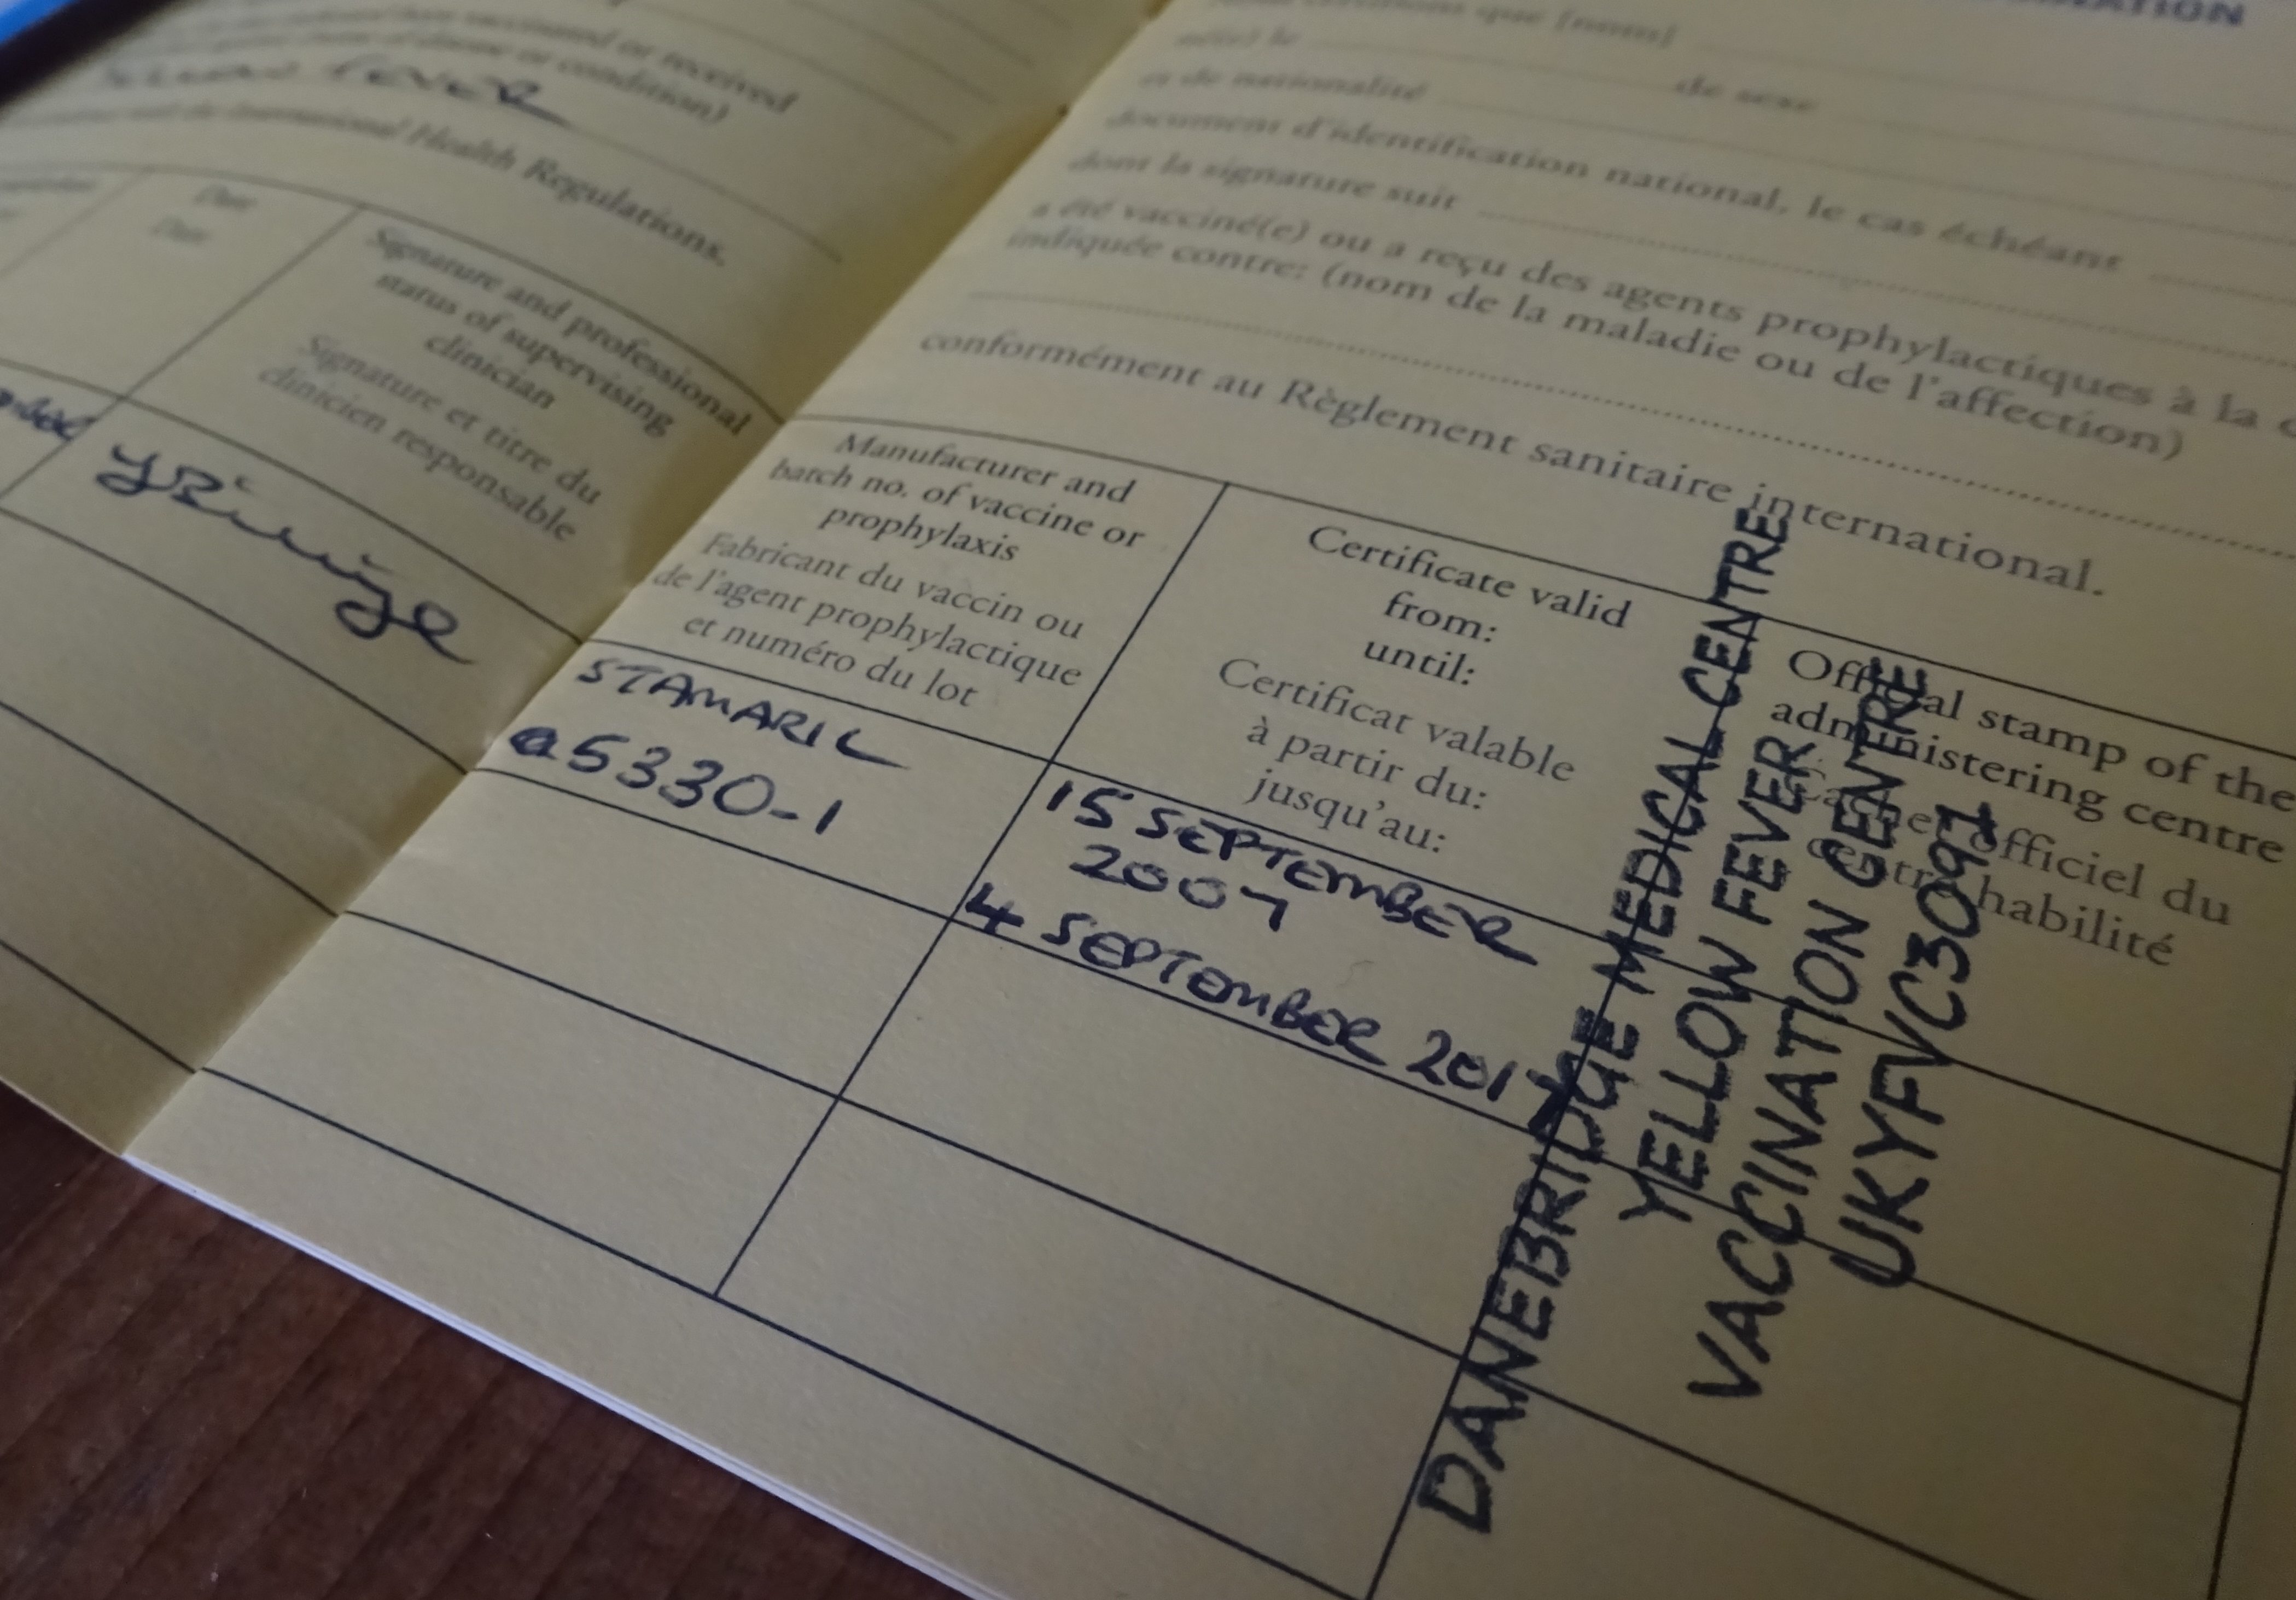 vaccinated or received
disease or condition)
FEVER
International Health Regulations.
Date
Date
Signature and professional
status of supervising
clinician
Signature et titre du
clinicien responsable
certifions que [nom]
né(e) le
de sexe
et de nationalité
document d'identification national, le cas échéant
dont la signature suit
a été vacciné(e) ou a reçu des agents prophylactiques à la
indiquée contre: (nom de la maladie ou de l'affection)
conformément au Règlement sanitaire international.
Manufacturer and
batch no. of vaccine or
prophylaxis
Fabricant du vaccin ou
de l'agent prophylactique
et numéro du lot
Certificate valid
from:
until:
Certificat valable
à partir du:
jusqu'au:
Official stamp of the
administering centre
Cachet officiel du
centre habilité
STAMARIL
a5330-1
15 SEPTEMBER
2007
4 SEPTEMBER 2017
DANEBRIDGE MEDICAL CENTRE
YELLOW FEVER
VACCINATION CENTRE
UKYFVC3091